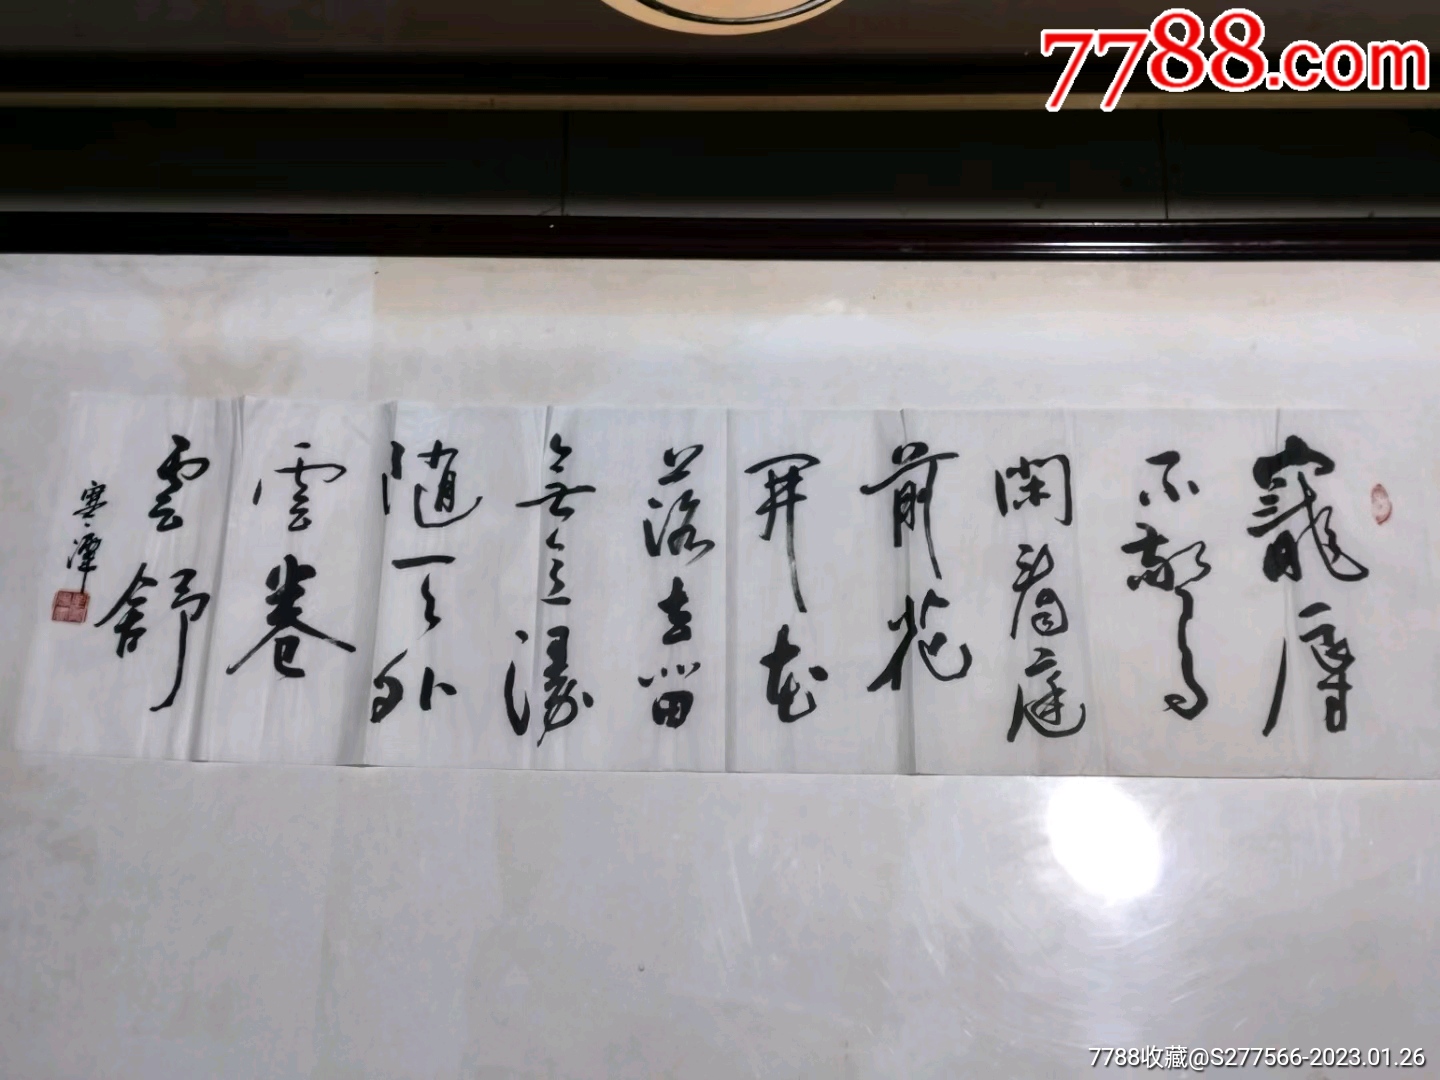 7788.com
寵辱
不驚
閑看庭
前花
開花
落去留
無意漫
隨天外
雲卷
雲舒
寒潭
7788收藏@S277566-2023.01.26